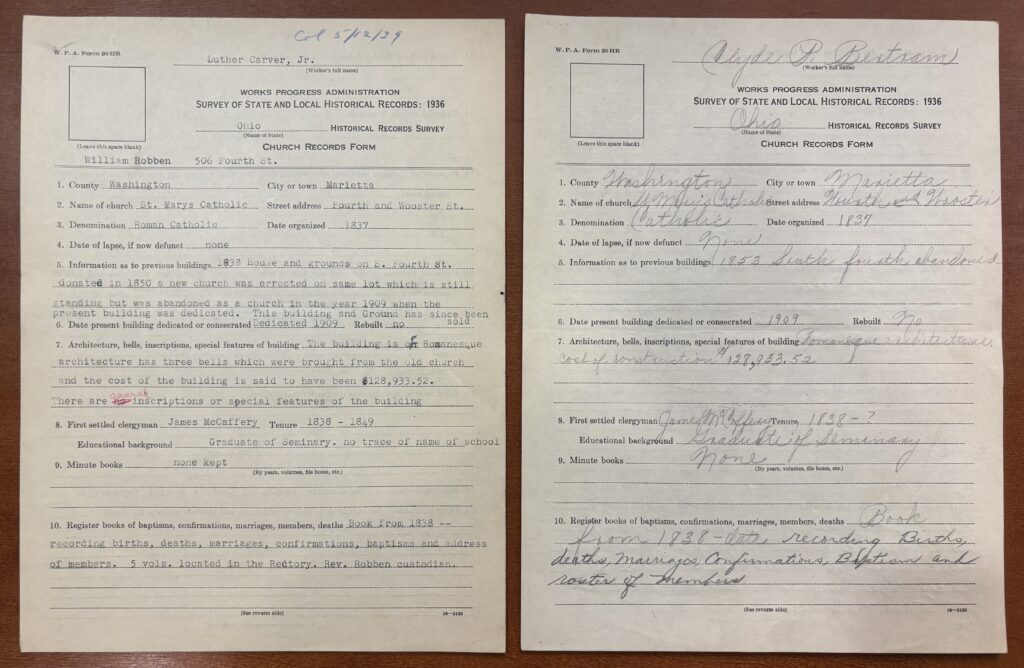 Col 5/12/39
W. P. A. Form 20 HR
Luther Carver, Jr.
(Worker's full name)
WORKS PROGRESS ADMINISTRATION
SURVEY OF STATE AND LOCAL HISTORICAL RECORDS: 1936
Ohio HISTORICAL RECORDS SURVEY
(Name of State)
(Leave this space blank)
CHURCH RECORDS FORM
William Robben 506 Fourth St.
1. County Washington City or town Marietta
2. Name of church St. Marys Catholic Street address Fourth and Wooster St.
3. Denomination Roman Catholic Date organized 1837
4. Date of lapse, if now defunct none
5. Information as to previous buildings 1838 House and grounds on S. Fourth St.
donated in 1850 a new church was errected on same lot which is still
standing but was abandoned as a church in the year 1909 when the
present building was dedicated. This building and Ground has since been
sold
6. Date present building dedicated or consecrated Dedicated 1909 Rebuilt no
7. Architecture, bells, inscriptions, special features of building The building is of Romanesque
architecture has three bells which were brought from the old church
and the cost of the building is said to have been $128,933.52.
There are no inscriptions or special features of the building
8. First settled clergyman James McCaffery Tenure 1838 - 1849
Educational background Graduate of Seminary. no trace of name of school
9. Minute books none kept
(By years, volumes, file boxes, etc.)
10. Register books of baptisms, confirmations, marriages, members, deaths Book from 1838 --
recording births, deaths, marriages, confirmations, baptisms and address
of members. 5 vols. located in the Rectory. Rev. Robben custodian.
(See reverse side)
W. P. A. Form 20 HR
Clyde P. Bertram
(Worker's full name)
WORKS PROGRESS ADMINISTRATION
SURVEY OF STATE AND LOCAL HISTORICAL RECORDS: 1936
Ohio HISTORICAL RECORDS SURVEY
(Name of State)
(Leave this space blank)
CHURCH RECORDS FORM
1. County Washington City or town Marietta
2. Name of church St Marys Catholic Street address Fourth and Wooster
3. Denomination Catholic Date organized 1837
4. Date of lapse, if now defunct None
5. Information as to previous buildings 1853 South fourth abandoned
6. Date present building dedicated or consecrated 1909 Rebuilt No
7. Architecture, bells, inscriptions, special features of building Romanesque architecture,
cost of construction $128,933.52
8. First settled clergyman James McCaffery Tenure 1838 - ?
Educational background Graduate of Seminary
9. Minute books None
(By years, volumes, file boxes, etc.)
10. Register books of baptisms, confirmations, marriages, members, deaths Book
from 1838 - date recording Births,
deaths, Marriages, Confirmations, Baptism and
roster of members
(See reverse side)